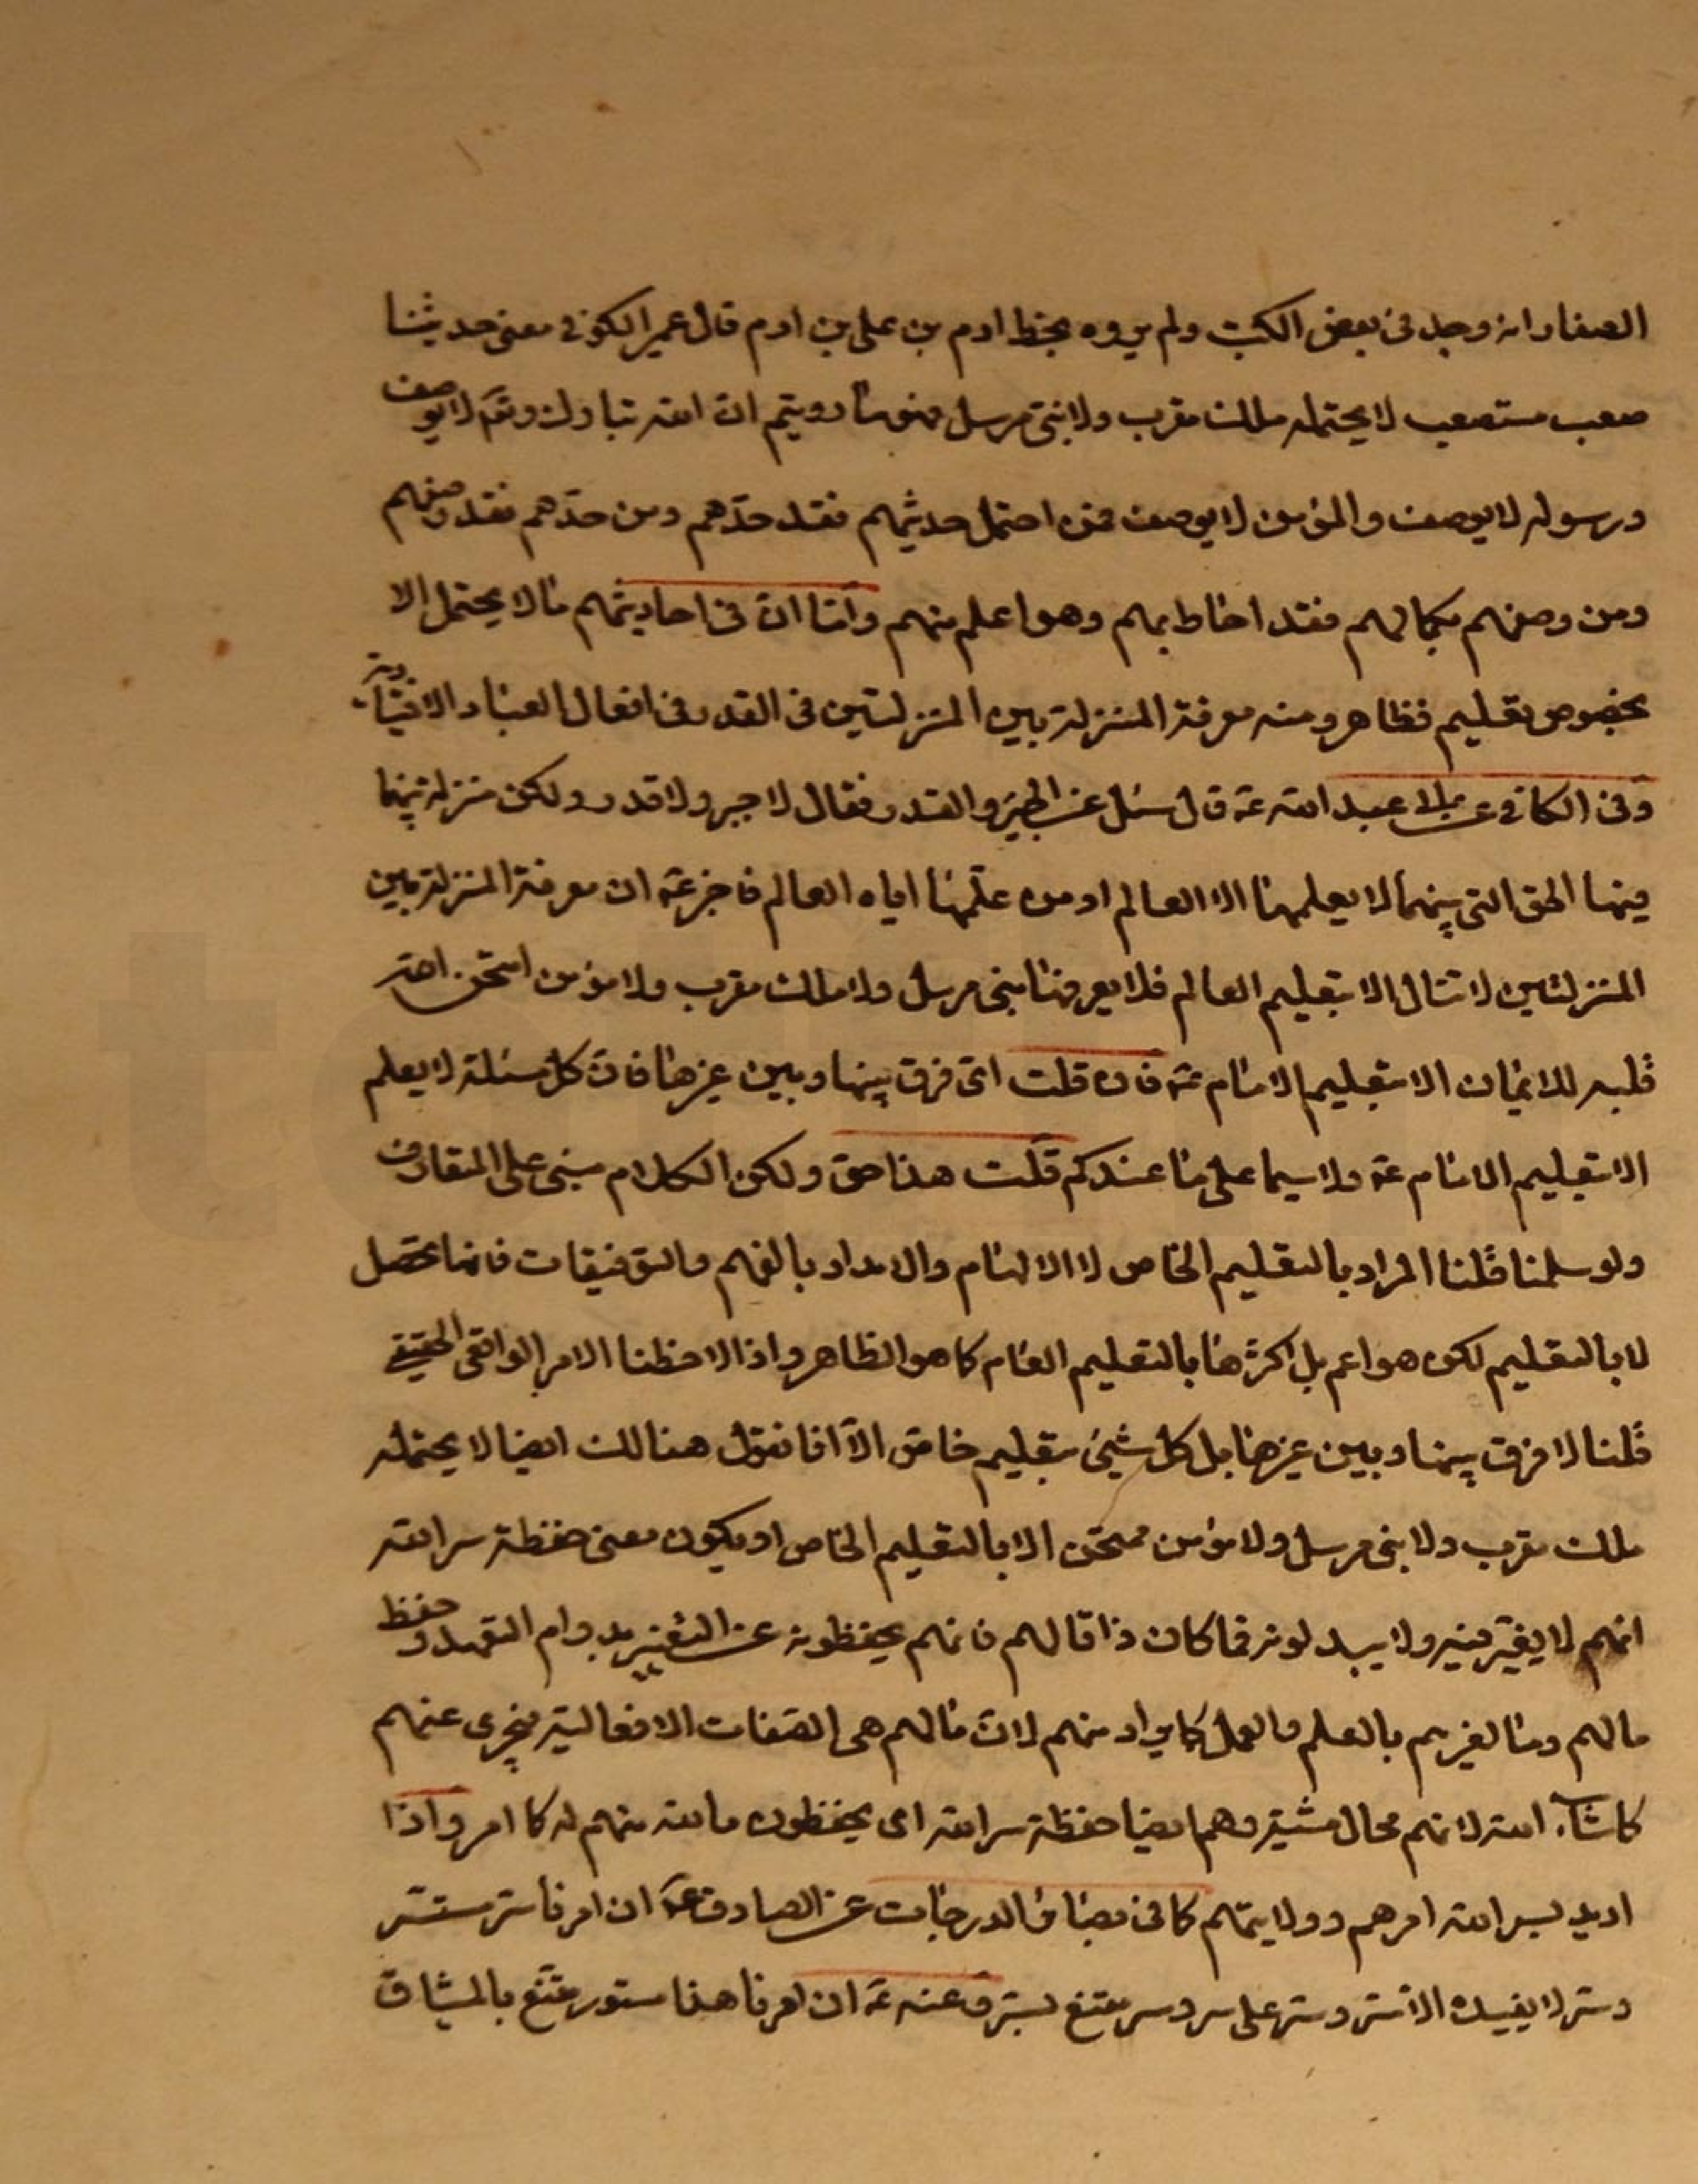 الصفار انه وجد فى بعض الكتب ولم يروه بخط ادم بن على بن ادم قال عمير الكوفى معنى حديثنا
صعب مستصعب لا يحتمله ملك مقرب ولا نبى مرسل فهو ما رويتم ان الله تبارك وتعَ لا يوصف
ورسوله لا يوصف والمؤمن لا يوصف فمن احتمل حديثهم فقد حدّهم ومن حدّهم فقد وصفهم
ومن وصفهم بكمالهم فقد احاط بهم وهو اعلم منهم وامّا انّ فى احاديثهم ما لا يحتمل الا
بخصوص تعليم فظاهر ومنه معرفة المنزلة بين المنزلتين فى القدر وفى افعال العباد الاختياريّة
وفى الكافى عن عبد الله عَ قال سئل عن الجبر والقدر فقال لا جبر ولا قدر ولكن منزلة بينهما
فيها الحق التى بينهما لا يعلمها الا العالم او من علّمها اياه العالم فاخبر عَ ان معرفة المنزلة بين
المنزلتين لا تنال الا بتعليم العالم فلا يعرفها نبى مرسل ولا ملك مقرب ولا مؤمن امتحن الله
قلبه للايمان الا بتعليم الامام عَ فان قلت اىّ فرق بينها وبين غيرها فانّ كل مسئلة لا يعلم
الا بتعليم الامام عَ ولا سيما على ما عندكم قلت هذا حق ولكن الكلام مبنى على المتعارف
ولو سلمنا قلنا المراد بالتعليم الخاص لا الالهام والامداد بالفهم والتوفيقات فانما تحصل
لا بالتعليم لكن هو اعم بل اكثرها بالتعليم العام كما هو الظاهر واذا لاحظنا الامر الواقعى الحقيقى
قلنا لا فرق بينها وبين غيرها بل كل شىء بتعليم خاص الّا انا نقول هنالك ايضا لا يحتمله
ملك مقرب ولا نبى مرسل ولا مؤمن ممتحن الا بالتعليم الخاص او يكون معنى حفظة سر الله
انهم لا يغيّر فيه ولا يبدلونه فما كان ذا قالهم فانهم يحفظونه عن التغيير بدوام التعهد وحفظ
ما لهم وما لغيرهم بالعلم والعمل كما يراد منهم لانّ ما لهم هى الصفات الافعالية فيجرى عنهم
كما شاء الله لانهم محال مشيته وهم ايضا حفظة سر الله اى يحفظون ما لله منهم له كما امر واذا
اريد بسر الله امرهم وولايتهم كما فى بصائر الدرجات عن الصادق عَ ان امرنا سر مستتر
وسر لا يفيده الا سر وسر على سر وسر مقنع بسر وعنه عَ ان امرنا هذا مستور مقنّع بالميثاق